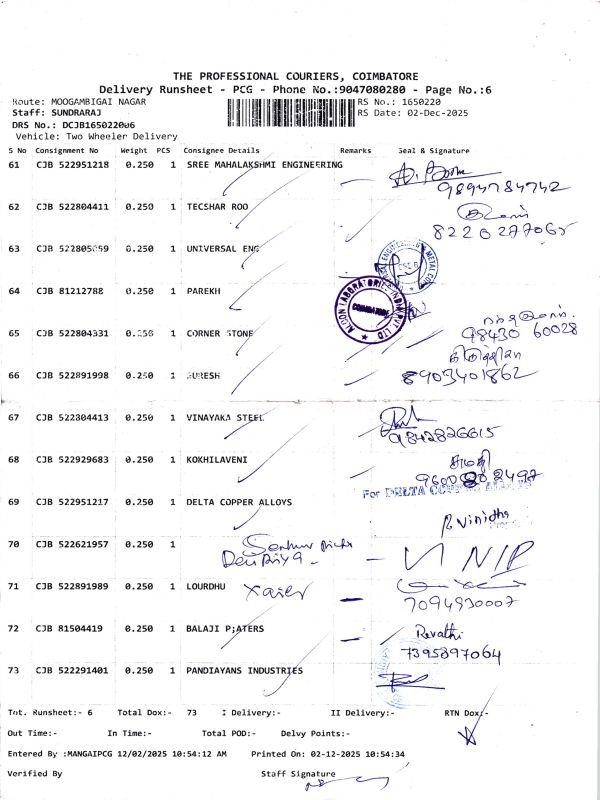 THE PROFESSIONAL COURIERS, COIMBATORE
Delivery Runsheet - PCG - Phone No.:9047080280 - Page No.:6
Route: MOOGAMBIGAI NAGAR RS No.: 1650220
Staff: SUNDRARAJ RS Date: 02-Dec-2025
DRS No.: DCJB165022006
Vehicle: Two Wheeler Delivery
S No Consignment No Weight PCS Consignee Details Remarks Seal & Signature
61 CJB 522951218 0.250 1 SREE MAHALAKSHMI ENGINEERING
9894784742
62 CJB 522804411 0.250 1 TECSHAR ROO
8220277065
63 CJB 522805059 0.250 1 UNIVERSAL ENG
64 CJB 81212788 0.250 1 PAREKH
COIMBATORE
65 CJB 522804331 0.250 1 CORNER STONE
98430 60028
66 CJB 522891998 0.250 1 SURESH
8903401862
67 CJB 522804413 0.250 1 VINAYAKA STEEL
9842826615
68 CJB 522929683 0.250 1 KOKHILAVENI
சுமதி
For DELTA COPPER ALLOYS
69 CJB 522951217 0.250 1 DELTA COPPER ALLOYS
R Vinidha
70 CJB 522621957 0.250 1
Devipriya
71 CJB 522891989 0.250 1 LOURDHU Xavier
7094930007
72 CJB 81504419 0.250 1 BALAJI P;ATERS Revathi
7395897064
73 CJB 522291401 0.250 1 PANDIAYANS INDUSTRIES
Tot. Runsheet:- 6 Total Dox:- 73 I Delivery:- II Delivery:- RTN Dox:-
Out Time:- In Time:- Total POD:- Delvy Points:-
Entered By :MANGAIPCG 12/02/2025 10:54:12 AM Printed On: 02-12-2025 10:54:34
Verified By Staff Signature